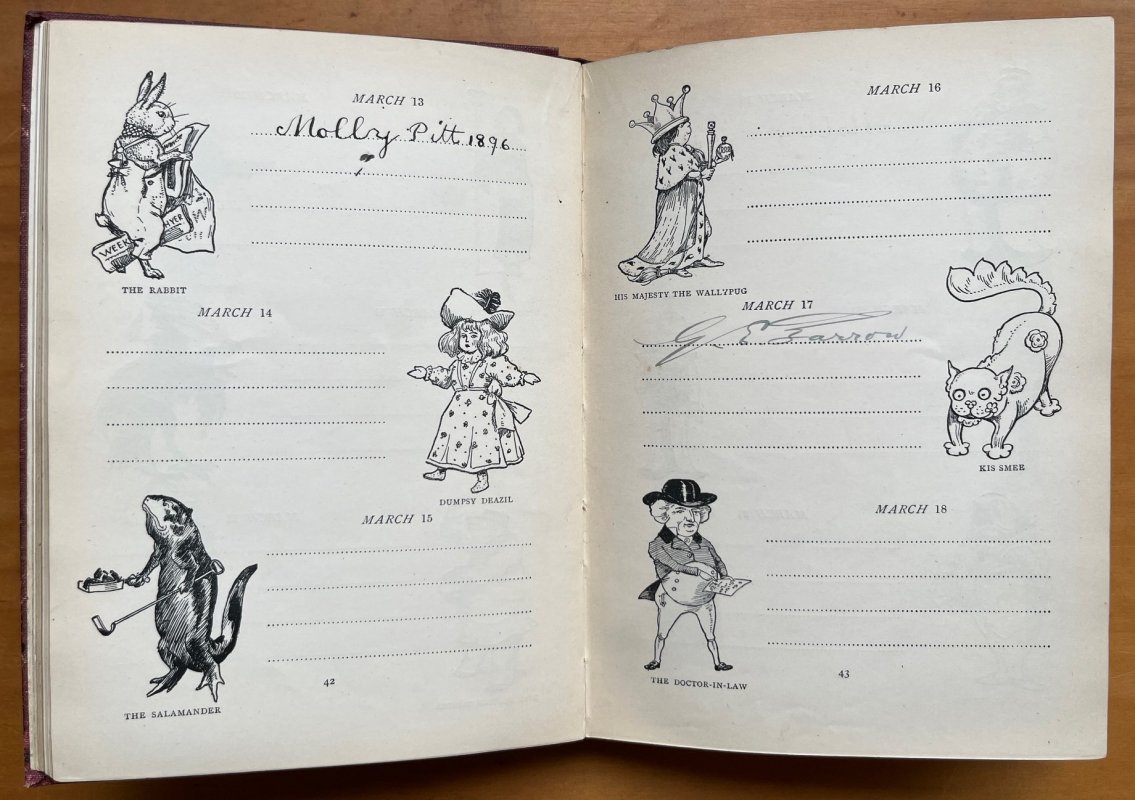 MARCH 13
Molly Pitt 1896
WEEK
THE RABBIT
MARCH 14
DUMPSY DEAZIL
MARCH 15
42
THE SALAMANDER
MARCH 16
HIS MAJESTY THE WALLYPUG
MARCH 17
G E Farrow
KIS SMEE
MARCH 18
THE DOCTOR-IN-LAW
43